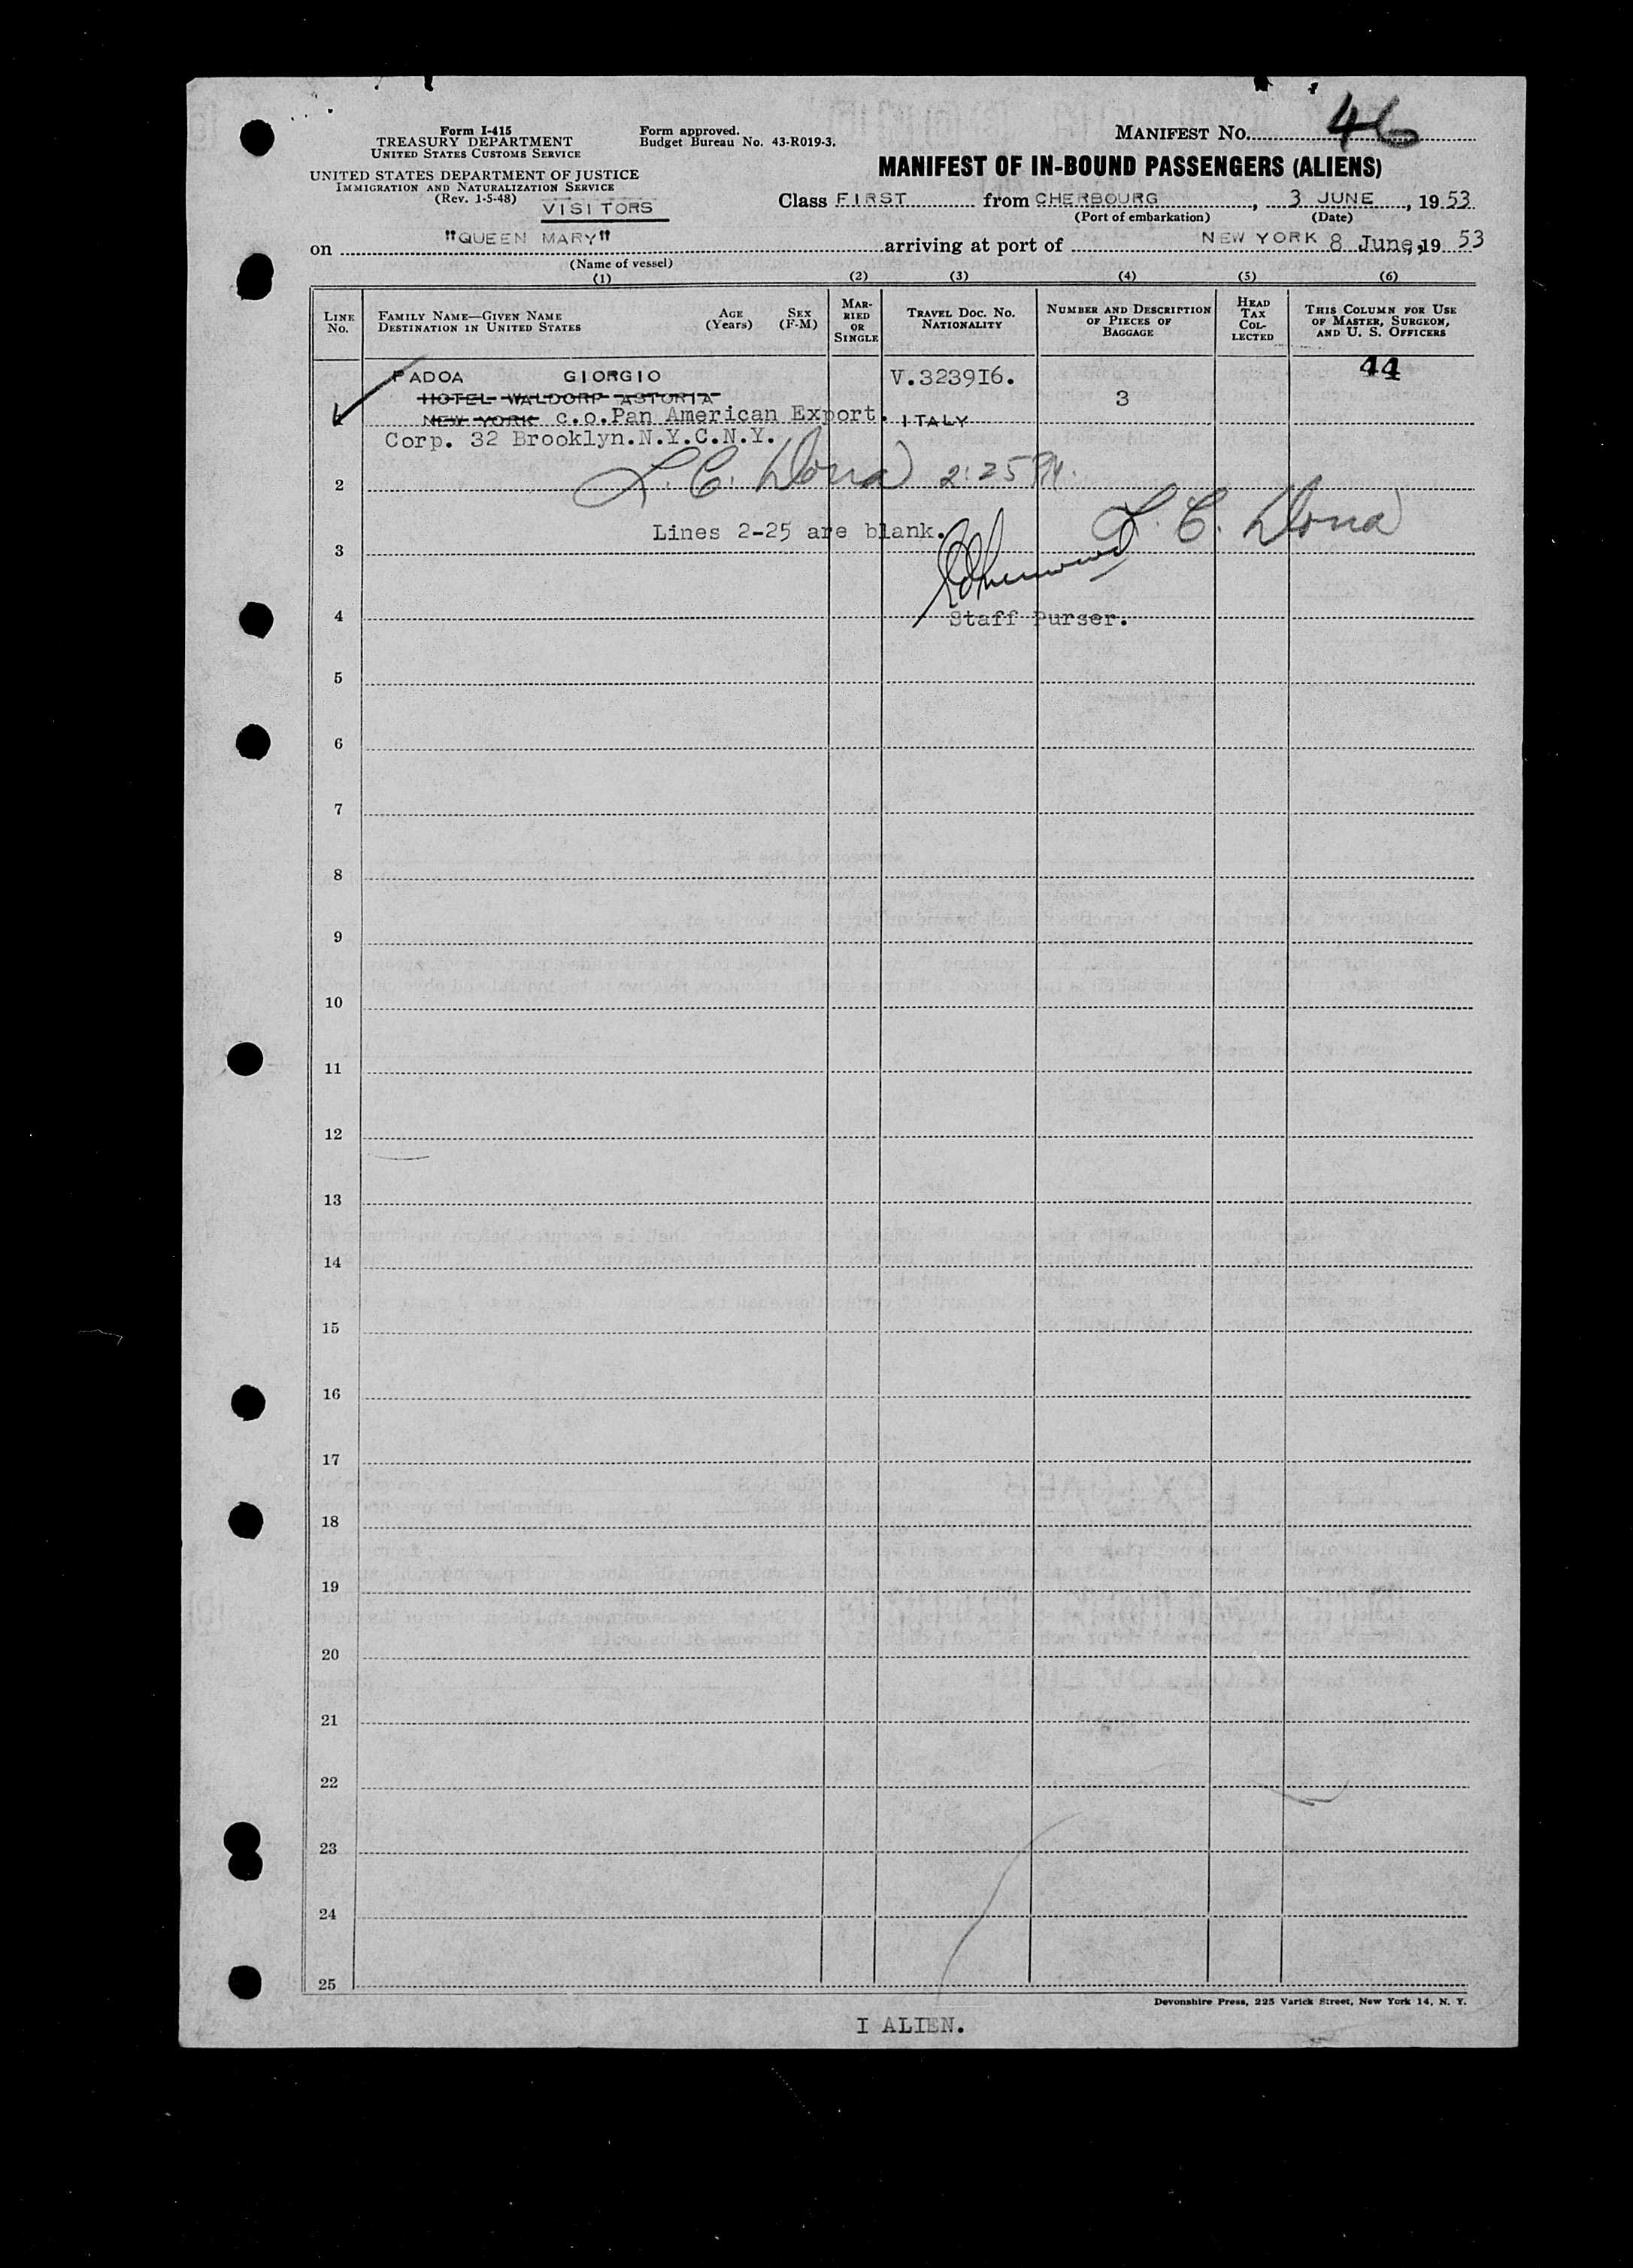 Form I-415
TREASURY DEPARTMENT
UNITED STATES CUSTOMS SERVICE
UNITED STATES DEPARTMENT OF JUSTICE
IMMIGRATION AND NATURALIZATION SERVICE
(Rev. 1-5-48)
VISITORS
Form approved.
Budget Bureau No. 43-R019-3.
MANIFEST No. 46
MANIFEST OF IN-BOUND PASSENGERS (ALIENS)
Class FIRST from CHERBOURG, 3 JUNE, 1953
(Port of embarkation) (Date)
on "QUEEN MARY" arriving at port of NEW YORK 8 June, 19 53
(Name of vessel)
(1) (2) (3) (4) (5) (6)
LINE No.
FAMILY NAME—GIVEN NAME
DESTINATION IN UNITED STATES
AGE (Years)
SEX (F-M)
MARRIED OR SINGLE
TRAVEL DOC. NO. NATIONALITY
NUMBER AND DESCRIPTION OF PIECES OF BAGGAGE
HEAD TAX COLLECTED
THIS COLUMN FOR USE OF MASTER, SURGEON, AND U. S. OFFICERS
44
PADOA GIORGIO V.3239I6.
HOTEL WALDORF ASTORIA 3
1 NEW YORK c.o.Pan American Export. ITALY
Corp. 32 Brooklyn.N.Y.C.N.Y.
2 L. C. Dona 2:25 PM.
Lines 2-25 are blank. L. C. Dona
3
4 Staff Purser.
5
6
7
8
9
10
11
12
13
14
15
16
17
18
19
20
21
22
23
24
25
Devonshire Press, 225 Varick Street, New York 14, N. Y.
I ALIEN.